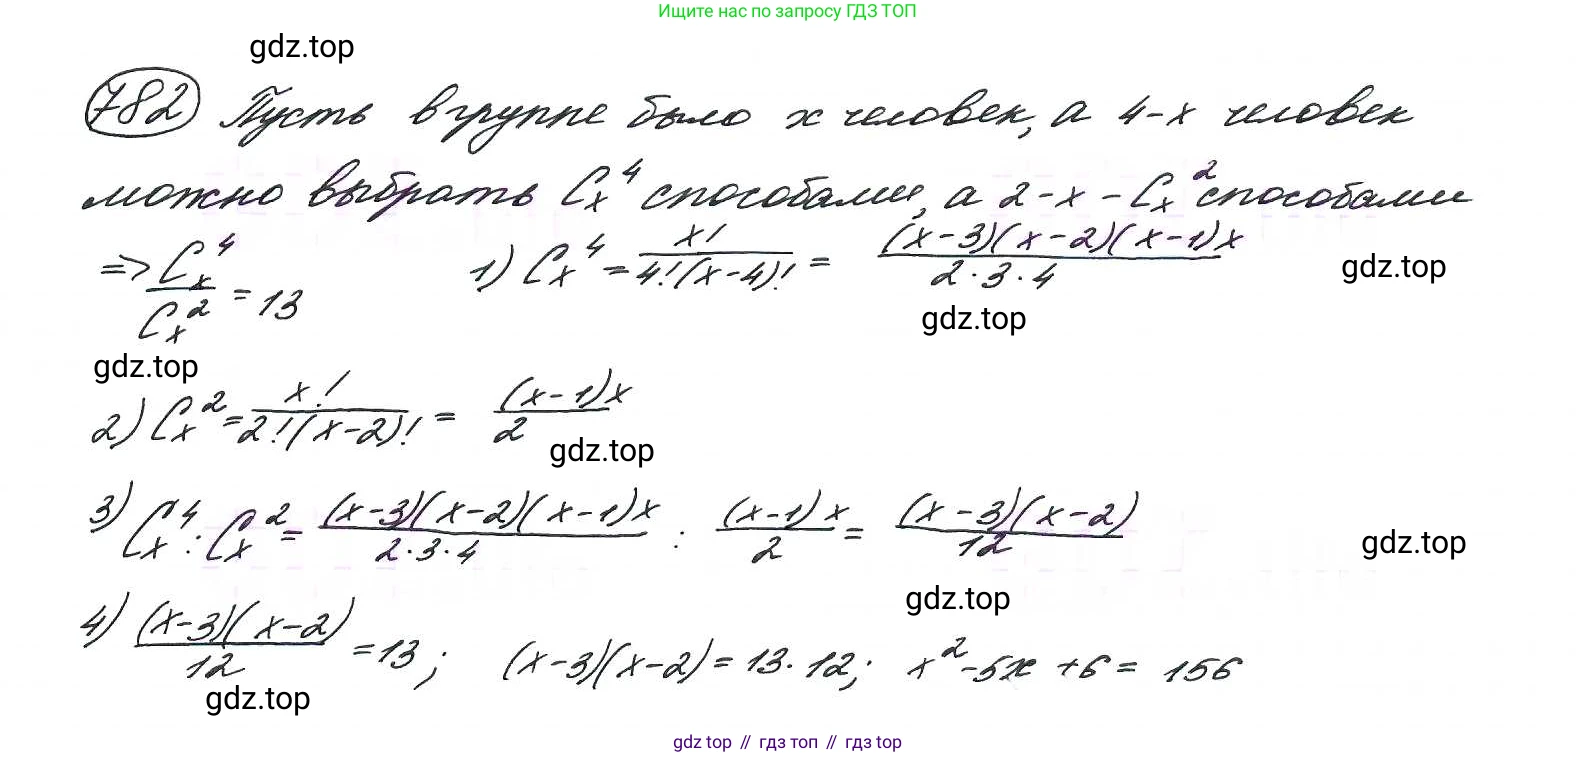 Ищите нас по запросу ГДЗ ТОП
gdz.top
782 Пусть в группе было x человек, а 4-x человек
можно выбрать C_x^4 способами, а 2-x - C_x^2 способами
=> C_x^4 / C_x^2 = 13 1) C_x^4 = x! / 4!(x-4)! = (x-3)(x-2)(x-1)x / 2·3·4
gdz.top
gdz.top
gdz.top
2) C_x^2 = x! / 2!(x-2)! = (x-1)x / 2
gdz.top
3) C_x^4 : C_x^2 = (x-3)(x-2)(x-1)x / 2·3·4 : (x-1)x / 2 = (x-3)(x-2) / 12
gdz.top
gdz.top
4) (x-3)(x-2) / 12 = 13; (x-3)(x-2) = 13·12; x^2-5x+6 = 156
gdz.top
gdz top // гдз топ // гдз top